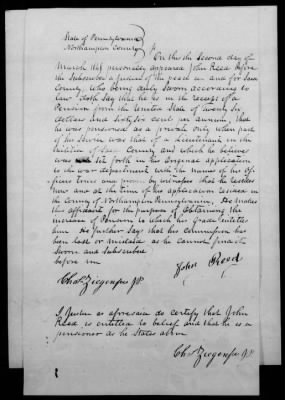 State of Pennsylvania
Northampton County
On this the Second day of
March 1848 personally appeared John Reed before
the Subscriber a Justice of the peace in and for said
County, who being duly Sworn according to
law doth Say that he is in the receipt of a
Pension from the United States of twenty Six
dollars and Sixty Six cents per annum, that
he was pensioned as a private only when part
of his Service was that of a Lieutenant in the
Militia of said County and which he believes
was set forth in his original application
to the war department with the names of his Of-
ficers time and place by witnesses that he resided
now and at the time of his application resided in the
County of Northampton Pennsylvania. He makes
this affidavit for the purpose of Obtaining the
increase of Pension to which his grade entitles
him He further Says that his Commission has
been lost or mislaid as he cannot find it
Sworn and Subscribed
before me
John Reed
Chas Ziegenfus JP
I further as aforesaid do certify that John
Reed is entitled to belief and that he is a
pensioner as he States above
Chas Ziegenfus JP